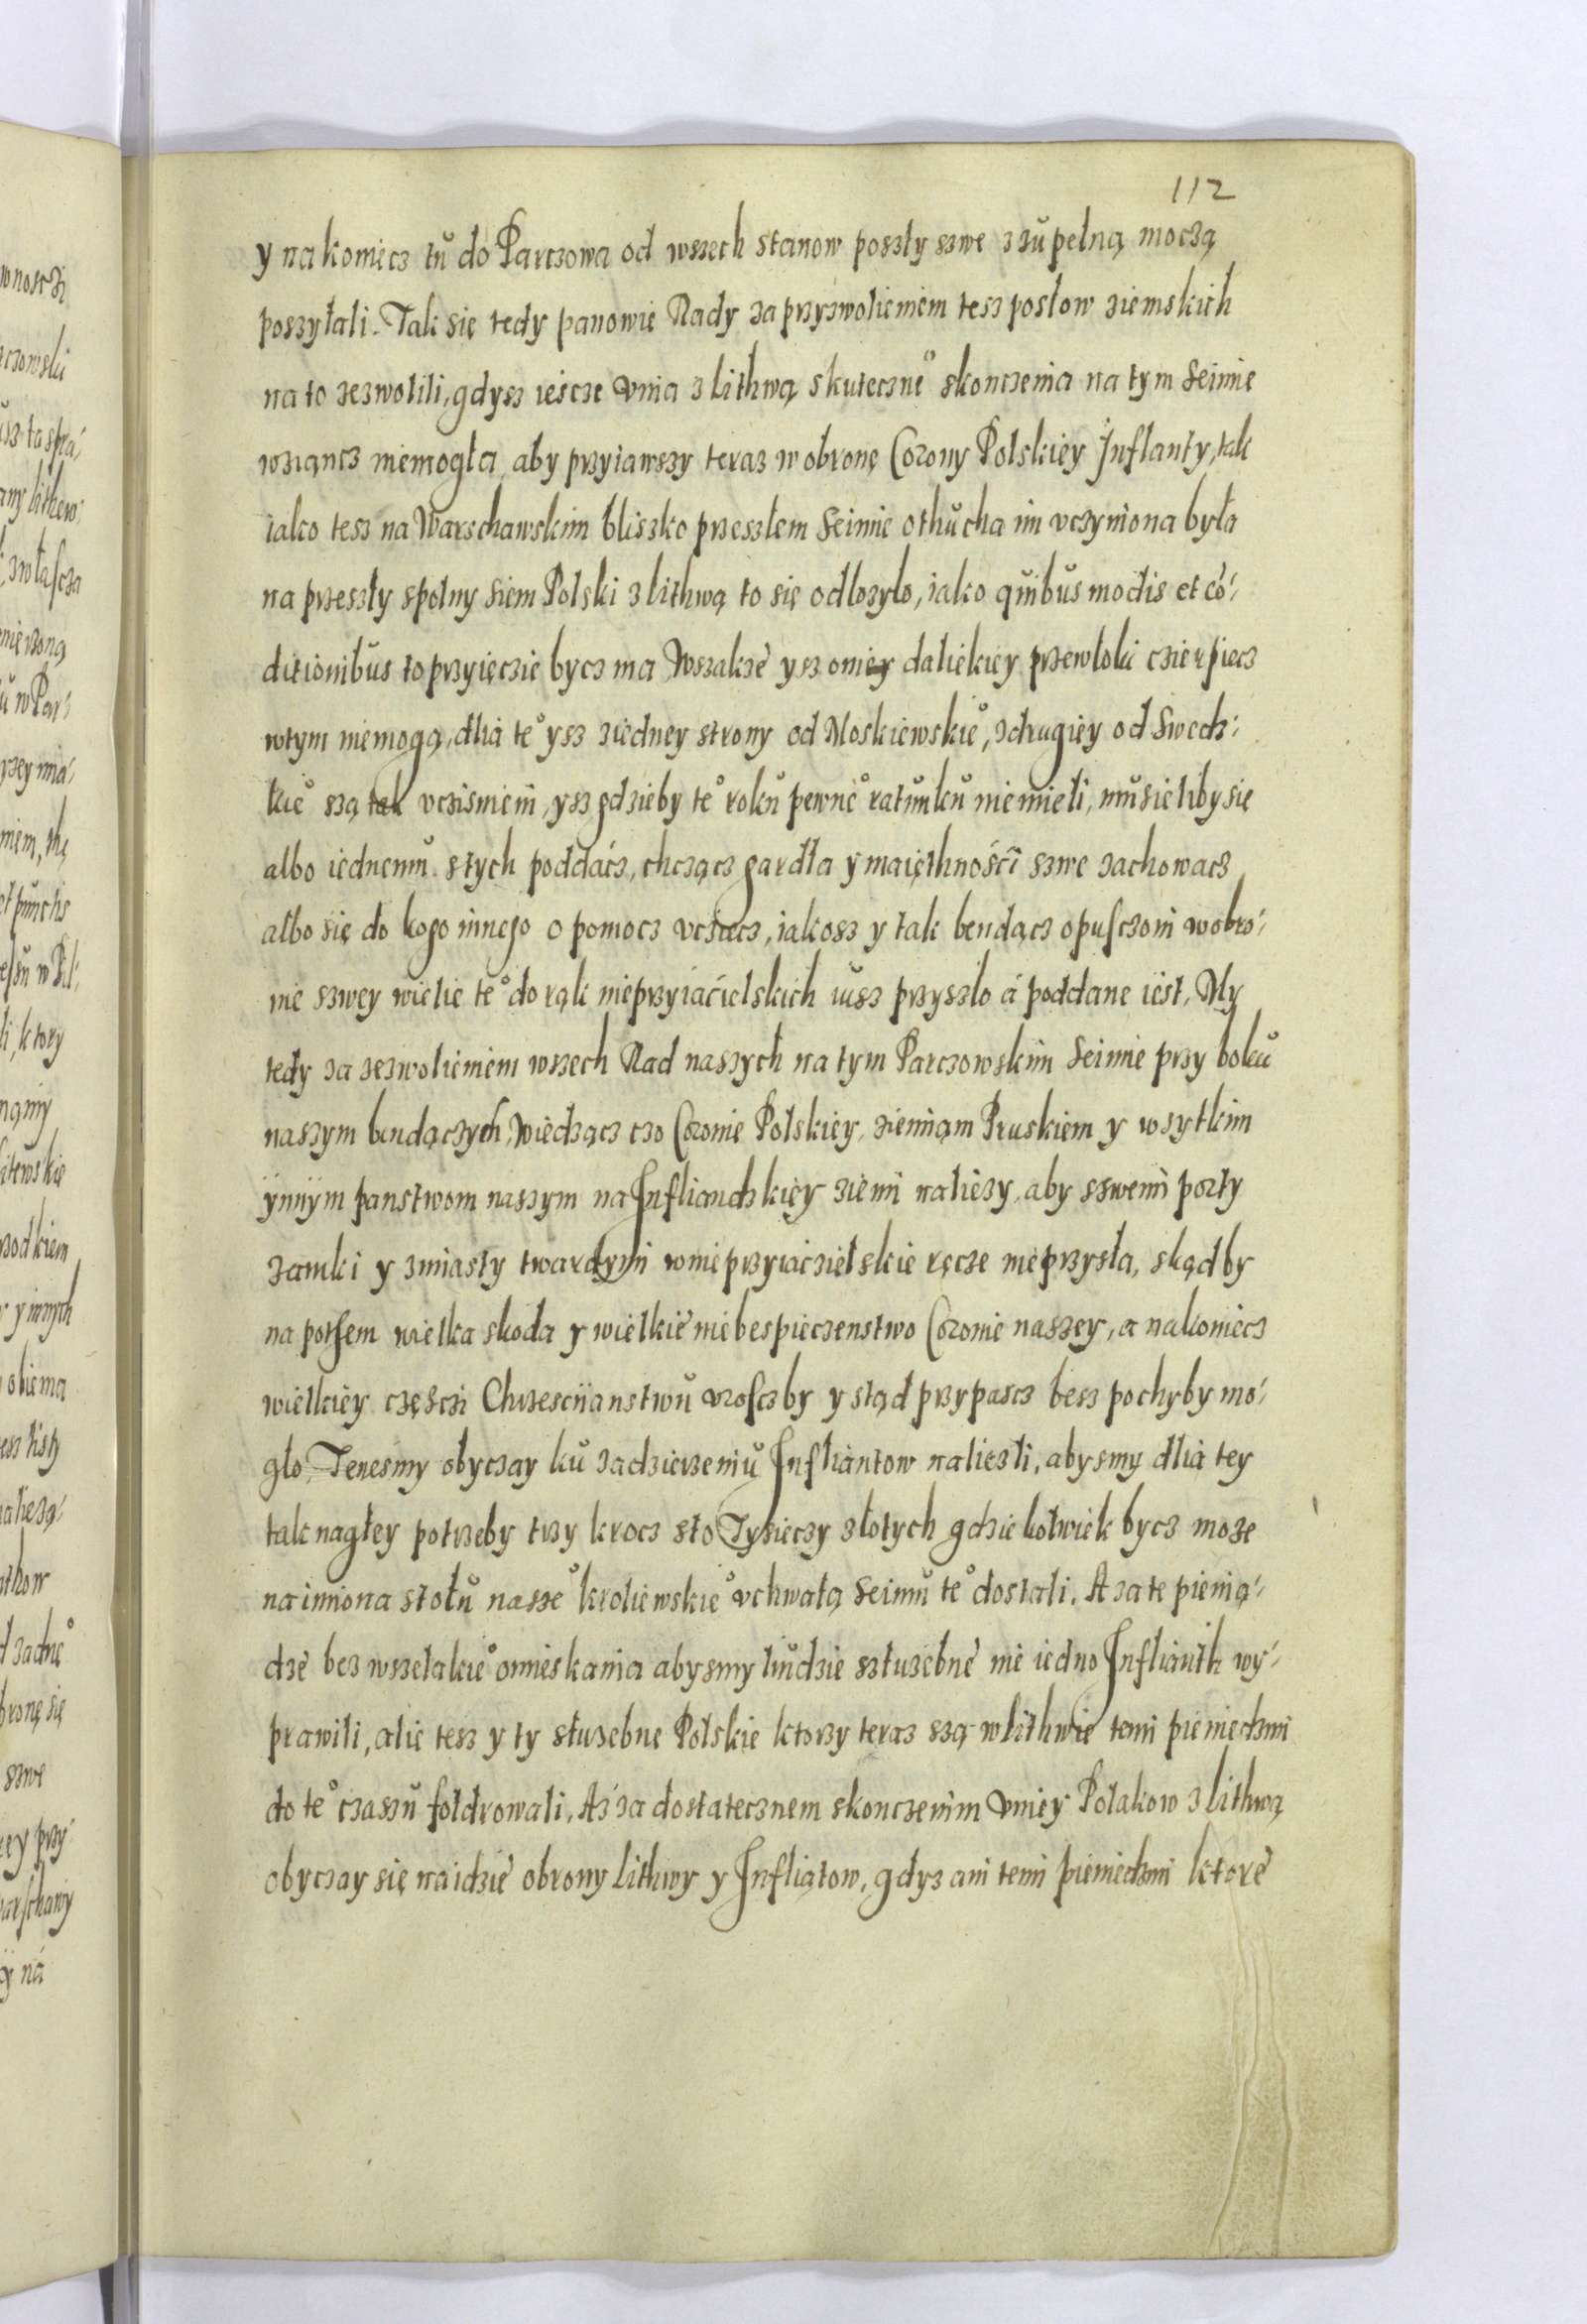 112
y na koniecz tu do Parczowa od wszech stanow poszły szwe z zupełną moczą
poszyłali. Tak się tedy panowie Rady za przyzwoliemem tesz posłow ziemskich
na to zezwolili, gdysz iescze Vnia z Lithwą skuteczne° skonczenia na tym Seimie
wziąncz niemogła, aby przyiawszy teraz w obronę Corony Polskiey Inflanty, tak
iako tesz na Warschawskim bliszko przeszlem Seimie othucha im vczyniona była
na przeszły spolny Siem Polski z Lithwą to się odlozylo, iako quibus modis et cō-
ditionibus to przyięczie bycz ma Wszakze ysz oniey daliekiey przewloki czierpiecz
wtym niemogą, dlia te° ysz ziedney strony od Moskiewskie°, zdrugiey od Swedz-
kie° szą tak vczisnieni, ysz gdzieby te° roku pewne° ratunku niemieli, musieliby się
albo iednemu stych poddacz, chcząncz gardła y maięthności szwe zachowacz
albo się do kogo innego o pomocz vcziecz, iakosz y tak bendącz opusczoni wobro-
nie szwey wielie te° do rąk nieprzyiacielskich iusz przyszlo á poddane iest, My
tedy za zezwoliemem wszech Rad naszych na tym Parczowskim Seimie przy boku
naszym bendączych, Wiedząc czo Coronie Polskiey, ziemiąm Pruskiem y wsytkim
ÿnnÿm panstwom naszym na Infliandzkiey ziemi naliezy, aby szwemi porty
zamki y zmiasty twardymi wnieprzyiaczielskie ręcze nieprzysła, skądby
na pothem wielka skoda y wielkie niebespieczenstwo Coronie naszey, a nakoniecz
wielkiey części Chrzesciianstwu vrosczby y stąd przypascz besz pochyby mo-
gło, Tenesmy obyczay ku zadzierzeniu Infliantow naliezli, abysmy dlia tey
tak nagłey potrzeby trzy krocz sto Tysieczy złotych gdziekolwiek bycz moze
na imiona stołu nasze° kroliewskie° vchwałą Seimu te° dostali. A za te pienią-
dze bez wszelakie° omieskania abysmy liudzie szłuzebne nie iedno Infliánth wy-
prawili, alie tesz y ty słuzebne Polskie ktorzy teraz szą w Lithwie temi pieniedzmi
do te° czaszu foldrowali. Aż za dostatecznem skonczenim Vniey Polakow z Lithwą
obyczay się naidzie obrony Lithwy y Infliątow, gdyz ani temi pieniedzmi ktore